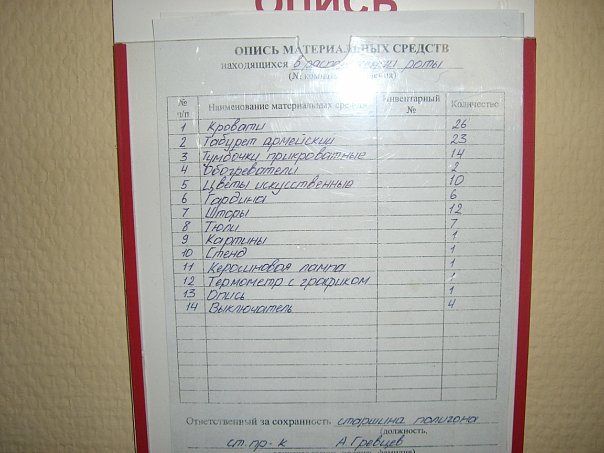 ОПИСЬ
ОПИСЬ МАТЕРИАЛЬНЫХ СРЕДСТВ
находящихся в расположении роты
(№ комнаты
№ п/п Наименование материальных средств Инвентарный № Количество
1 Кровати 26
2 Табурет армейский 23
3 Тумбочки прикроватные 14
4 Обогреватели 2
5 Цветы искусственные 10
6 Гардина 6
7 Шторы 12
8 Тюли 7
9 Картины 1
10 Стенд 1
11 Керосиновая лампа 1
12 Термометр с графиком 1
13 Опись 1
14 Выключатель 4
Ответственный за сохранность старшина полигона
(должность,
ст. пр-к А. Гревцев